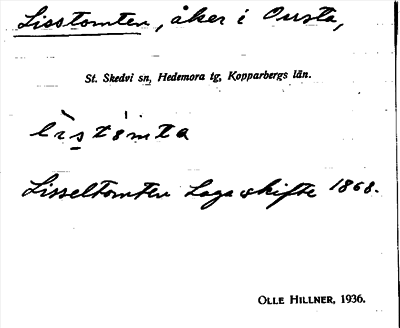 Lisstomten, åker i Ousta,
St. Skedvi sn, Hedemora tg, Kopparbergs län.
Lisseltomten Laga skifte 1868.
OLLE HILLNER, 1936.